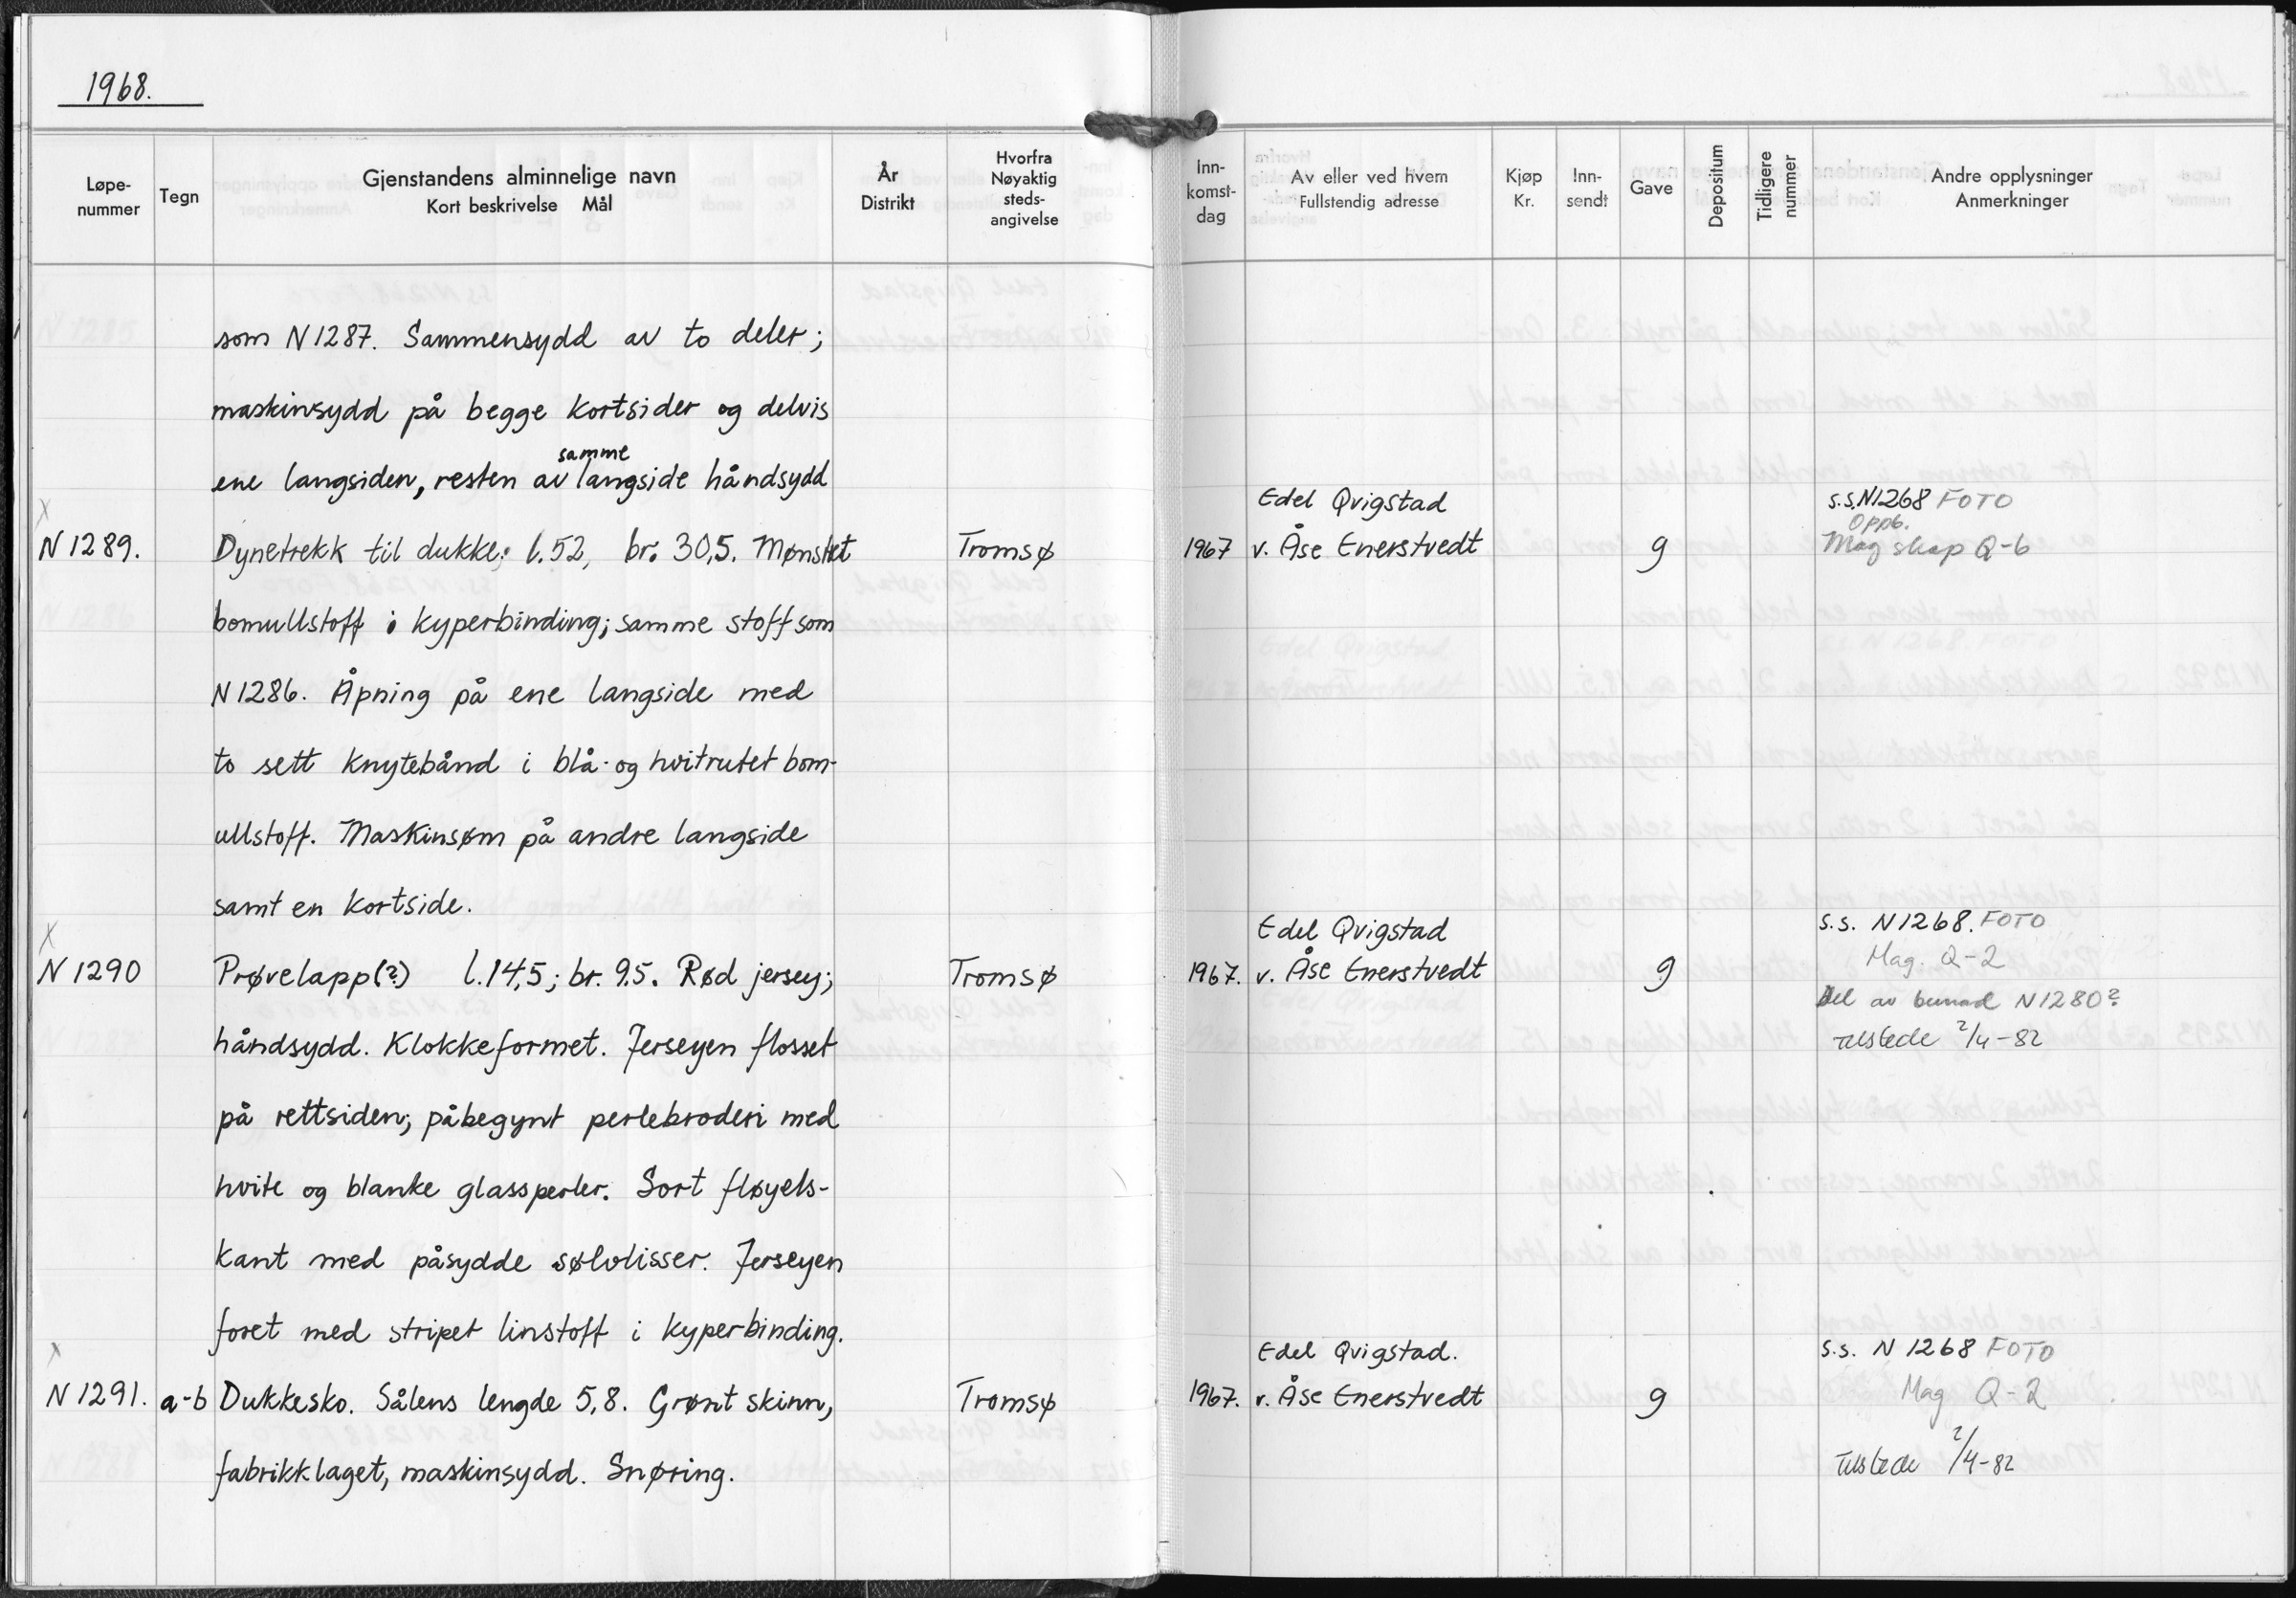 1968.
Løpe-
nummer
Tegn
Gjenstandens alminnelige navn
Kort beskrivelse Mål
År
Distrikt
Hvorfra
Nøyaktig
steds-
angivelse
Inn-
komst-
dag
Av eller ved hvem
Fullstendig adresse
Kjøp
Kr.
Inn-
sendt
Gave
Depositum
Tidligere
nummer
Andre opplysninger
Anmerkninger
som N1287. Sammensydd av to deler;
maskinsydd på begge kortsider og delvis
samme
ene langsiden, resten av langside håndsydd
Edel Qvigstad s.s. N1268 FOTO
Oppb.
X
N1289. Dynetrekk til dukke; l.52, br. 30,5. Mønstret Tromsø 1967 v. Åse Enerstvedt g Mag skap Q-6
bomullstoff i kyperbinding; samme stoff som
N1286. Åpning på ene langside med
to sett knytebånd i blå- og hvitrutet bom-
ullstoff. Maskinsøm på andre langside
samt en kortside.
X Edel Qvigstad s.s. N1268. FOTO
N1290 Prøvelapp(?) l.14,5; br. 9,5. Rød jersey; Tromsø 1967. v. Åse Enerstvedt g Mag. Q-2
Del av bunad N1280?
håndsydd. Klokkeformet. Jerseyen flosset Tilstede 2/4-82
på rettsiden; påbegynt perlebroderi med
hvite og blanke glassperler. Sort fløyels-
kant med påsydde sølvlisser. Jerseyen
foret med stripet linstoff i kyperbinding.
X Edel Qvigstad. s.s. N1268 FOTO
N1291. a-b Dukkesko. Sålens lengde 5,8. Grønt skinn, Tromsø 1967. v. Åse Enerstvedt g Mag Q-2
fabrikklaget, maskinsydd. Snøring. Tilstede 2/4-82